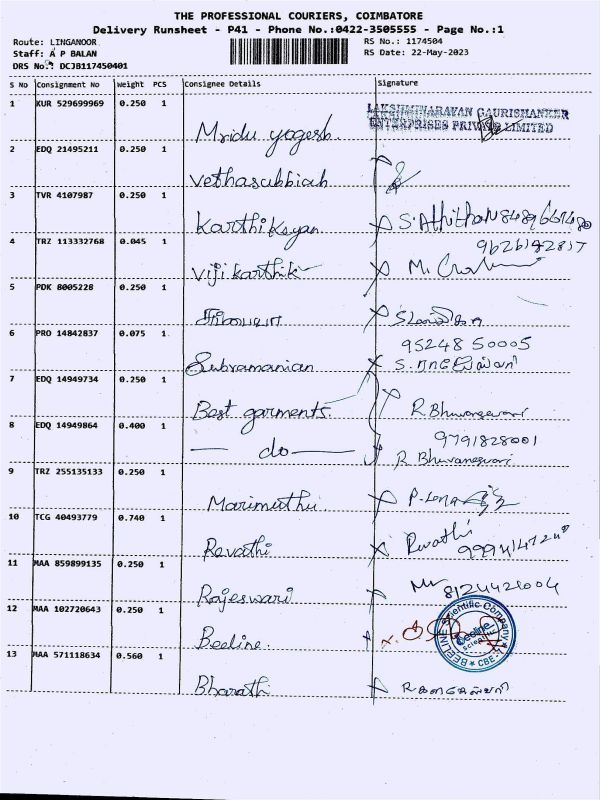 THE PROFESSIONAL COURIERS, COIMBATORE
Delivery Runsheet - P41 - Phone No.:0422-3505555 - Page No.:1
Route: LINGANOOR
RS No.: 1174504
Staff: A P BALAN
RS Date: 22-May-2023
DRS No.: DCJB117450401
S No Consignment No Weight PCS Consignee Details Signature
1 KUR 529699969 0.250 1
LAKSHMINARAYAN GAURISHANKER
ENTERPRISES PRIVATE LIMITED
Mridu yogesh
2 EDQ 21495211 0.250 1
Vethasubbiah
3 TVR 4107987 0.250 1
Karthikeyan
4 TRZ 113332768 0.045 1
9626182817
Viji karthik
5 PDK 8005228 0.250 1
6 PRO 14842837 0.075 1
95248 50005
Subramanian
7 EDQ 14949734 0.250 1
Best garments R Bhuvaneswari
8 EDQ 14949864 0.400 1
9791828001
— do — R Bhuvaneswari
9 TRZ 255135133 0.250 1
Marimuthu
10 TCG 40493779 0.740 1
Revathi Revathi
11 MAA 859899135 0.250 1
Rajeswari 8124421004
12 MAA 102720643 0.250 1
BEELINE Scientific Company
Beeline
SCIENTIFIC
CBE
Beeline
13 MAA 571118634 0.560 1
Bharathi